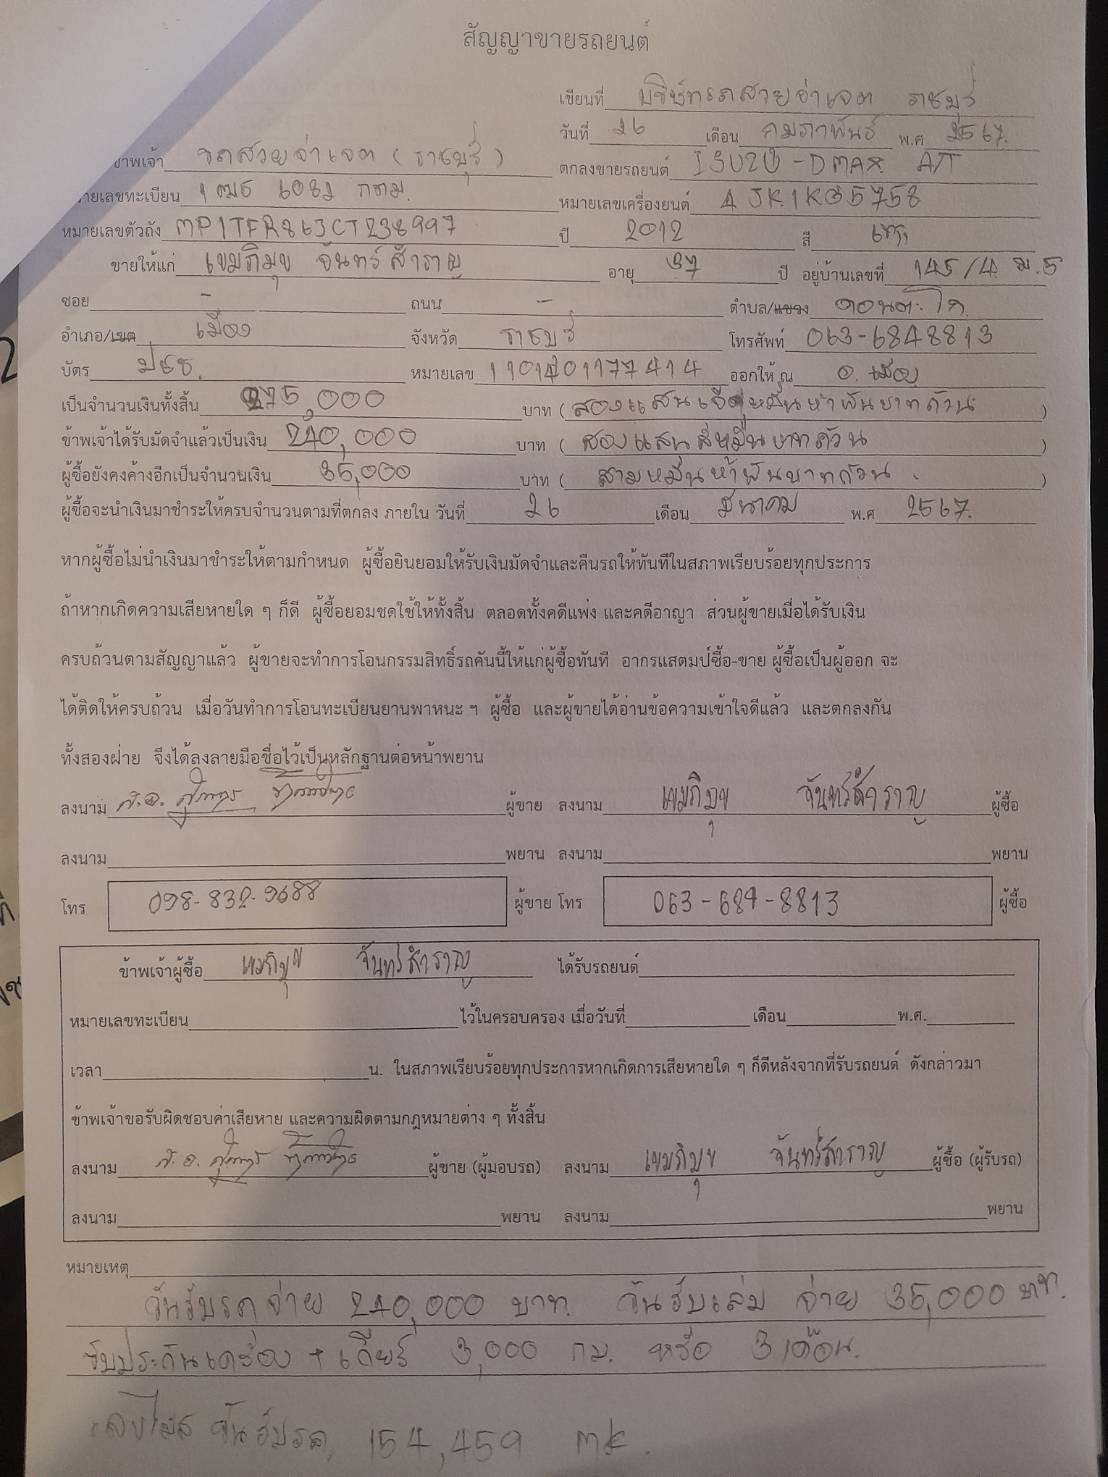 สัญญาขายรถยนต์
เขียนที่ บริษัทรถสวยอำเจต ราชบุรี
วันที่ 26 เดือน กุมภาพันธ์ พ.ศ 2567.
ข้าพเจ้า รถสวยอำเจต (ราชบุรี) ตกลงขายรถยนต์ ISUZU - DMAX A/T
หมายเลขทะเบียน 1 6082 กทม. หมายเลขเครื่องยนต์ 4JK1KG5758
หมายเลขตัวถัง MP1TFR86JCT238997 ปี 2012 สี เทา
ขายให้แก่ เขมภิมุข จันทร์สำราญ อายุ 37 ปี อยู่บ้านเลขที่ 145/4 ม.5
ซอย - ถนน - ตำบล/แขวง ดอนตะโก
อำเภอ/เขต เมือง จังหวัด ราชบุรี โทรศัพท์ 063-6848813
บัตร ปชช. หมายเลข 1101401177414 ออกให้ ณ อ. เมือง
เป็นจำนวนเงินทั้งสิ้น 275,000 บาท (สองแสนเจ็ดหมื่นห้าพันบาทถ้วน)
ข้าพเจ้าได้รับมัดจำแล้วเป็นเงิน 240,000 บาท ( สองแสนสี่หมื่นบาทถ้วน )
ผู้ซื้อยังคงค้างอีกเป็นจำนวนเงิน 35,000 บาท ( สามหมื่นห้าพันบาทถ้วน. )
ผู้ซื้อจะนำเงินมาชำระให้ครบจำนวนตามที่ตกลง ภายใน วันที่ 26 เดือน มีนาคม พ.ศ 2567.
หากผู้ซื้อไม่นำเงินมาชำระให้ตามกำหนด ผู้ซื้อยินยอมให้รับเงินมัดจำและคืนรถให้ทันทีในสภาพเรียบร้อยทุกประการ
ถ้าหากเกิดความเสียหายใด ๆ ก็ดี ผู้ซื้อยอมชดใช้ให้ทั้งสิ้น ตลอดทั้งคดีแพ่ง และคดีอาญา ส่วนผู้ขายเมื่อได้รับเงิน
ครบถ้วนตามสัญญาแล้ว ผู้ขายจะทำการโอนกรรมสิทธิ์รถคันนี้ให้แก่ผู้ซื้อทันที อากรแสตมป์ซื้อ-ขาย ผู้ซื้อเป็นผู้ออก จะ
ได้ติดให้ครบถ้วน เมื่อวันทำการโอนทะเบียนยานพาหนะ ฯ ผู้ซื้อ และผู้ขายได้อ่านข้อความเข้าใจดีแล้ว และตกลงกัน
ทั้งสองฝ่าย จึงได้ลงลายมือชื่อไว้เป็นหลักฐานต่อหน้าพยาน
ลงนาม ผู้ขาย ลงนาม เขมภิมุข จันทร์สำราญ ผู้ซื้อ
ลงนาม พยาน ลงนาม พยาน
โทร 098-832-9688 ผู้ขาย โทร 063-684-8813 ผู้ซื้อ
ข้าพเจ้าผู้ซื้อ เขมภิมุข จันทร์สำราญ ได้รับรถยนต์
หมายเลขทะเบียน ไว้ในครอบครอง เมื่อวันที่ เดือน พ.ศ.
เวลา น. ในสภาพเรียบร้อยทุกประการหากเกิดการเสียหายใด ๆ ก็ดีหลังจากที่รับรถยนต์ ดังกล่าวมา
ข้าพเจ้าขอรับผิดชอบค่าเสียหาย และความผิดตามกฎหมายต่าง ๆ ทั้งสิ้น
ลงนาม ผู้ขาย (ผู้มอบรถ) ลงนาม เขมภิมุข จันทร์สำราญ ผู้ซื้อ (ผู้รับรถ)
ลงนาม พยาน ลงนาม พยาน
หมายเหตุ
วันรับรถจ่าย 240,000 บาท. วันรับเล่ม จ่าย 35,000 บาท.
รับประกันเครื่อง + เกียร์ 3,000 กม. หรือ 3 เดือน.
เลขไมล์ วันรับรถ, 154,459 mk.